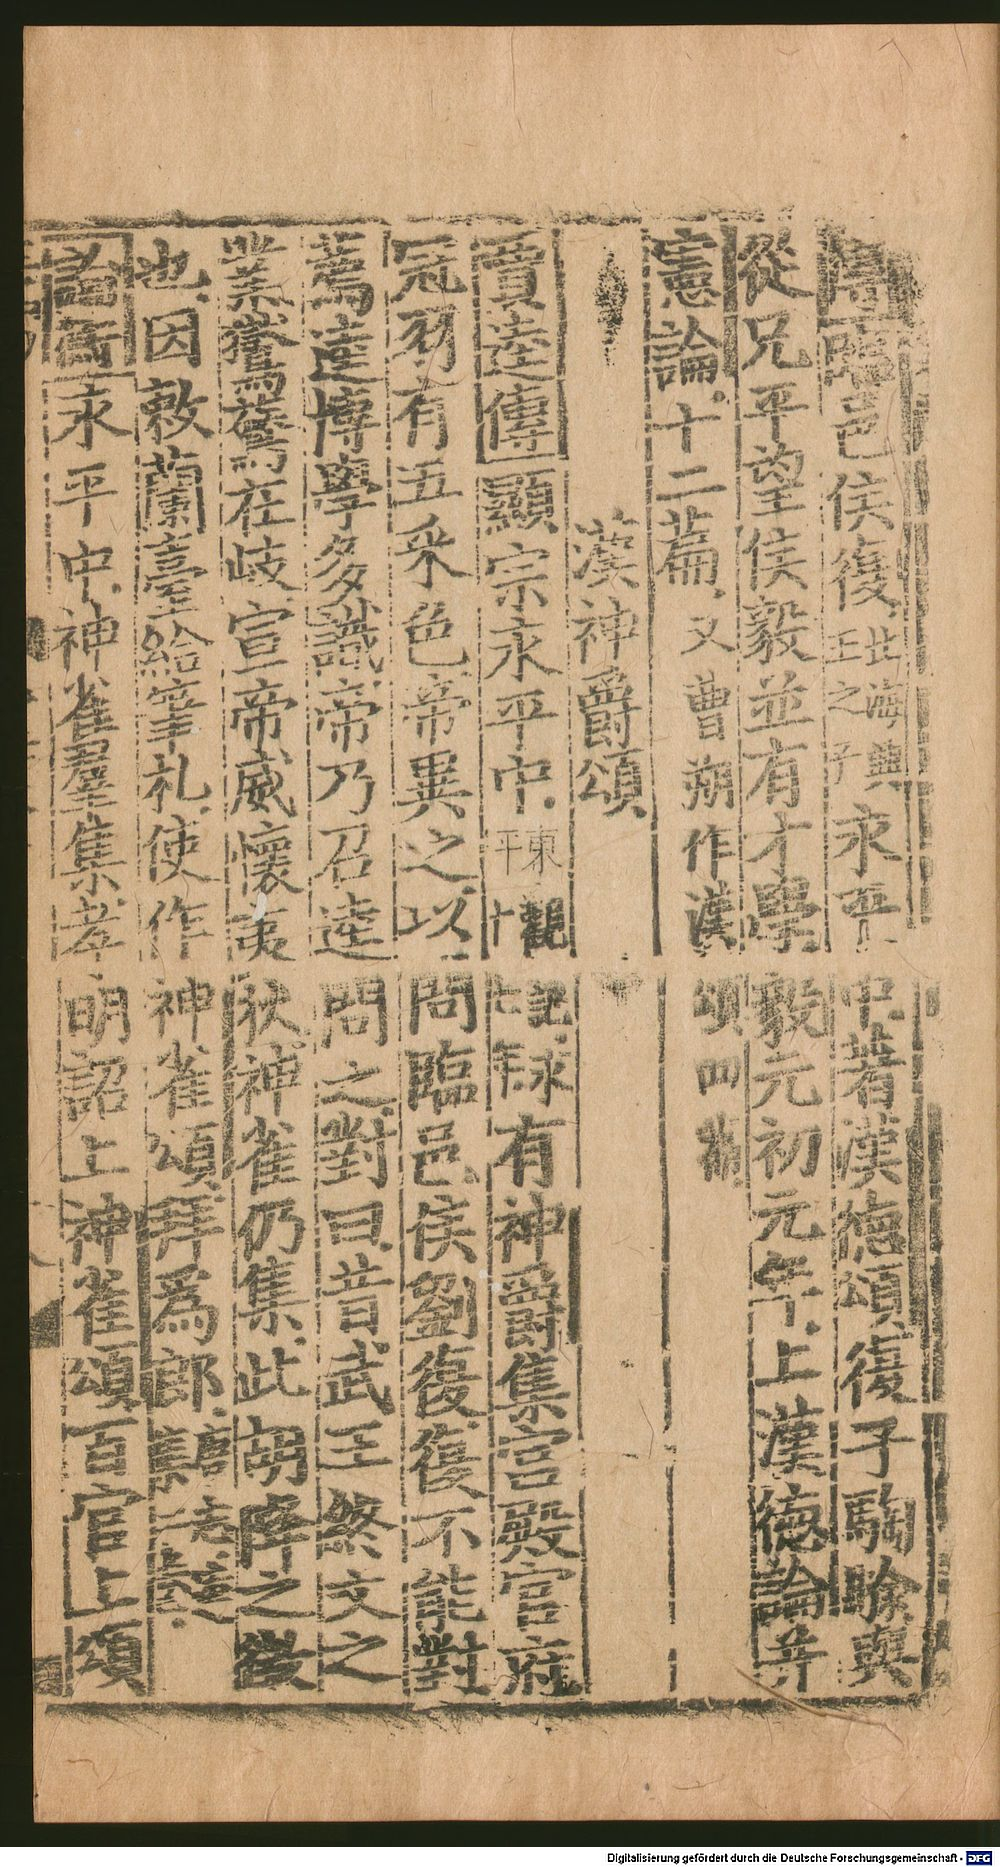 傳臨邑侯復北海興王之子永平中著漢德頌復子騊駼與
從兄平望侯毅並有才學毅元初元年上漢德論并
憲論十二篇又曹朔作漢頌四篇
漢神爵頌
賈逵傳顯宗永平中東觀記十七年時有神爵集宮殿官府
冠羽有五采色帝異之以問臨邑侯劉復復不能對
薦逵博學多識帝乃召逵問之對曰昔武王終父之
業鸑鷟在岐宣帝威懷夷狄神雀仍集此胡降之徵
也因敕蘭臺給筆札使作神雀頌拜為郎
論衡永平中神雀羣集孝明詔上神雀頌百官上頌
Digitalisierung gefördert durch die Deutsche Forschungsgemeinschaft - DFG